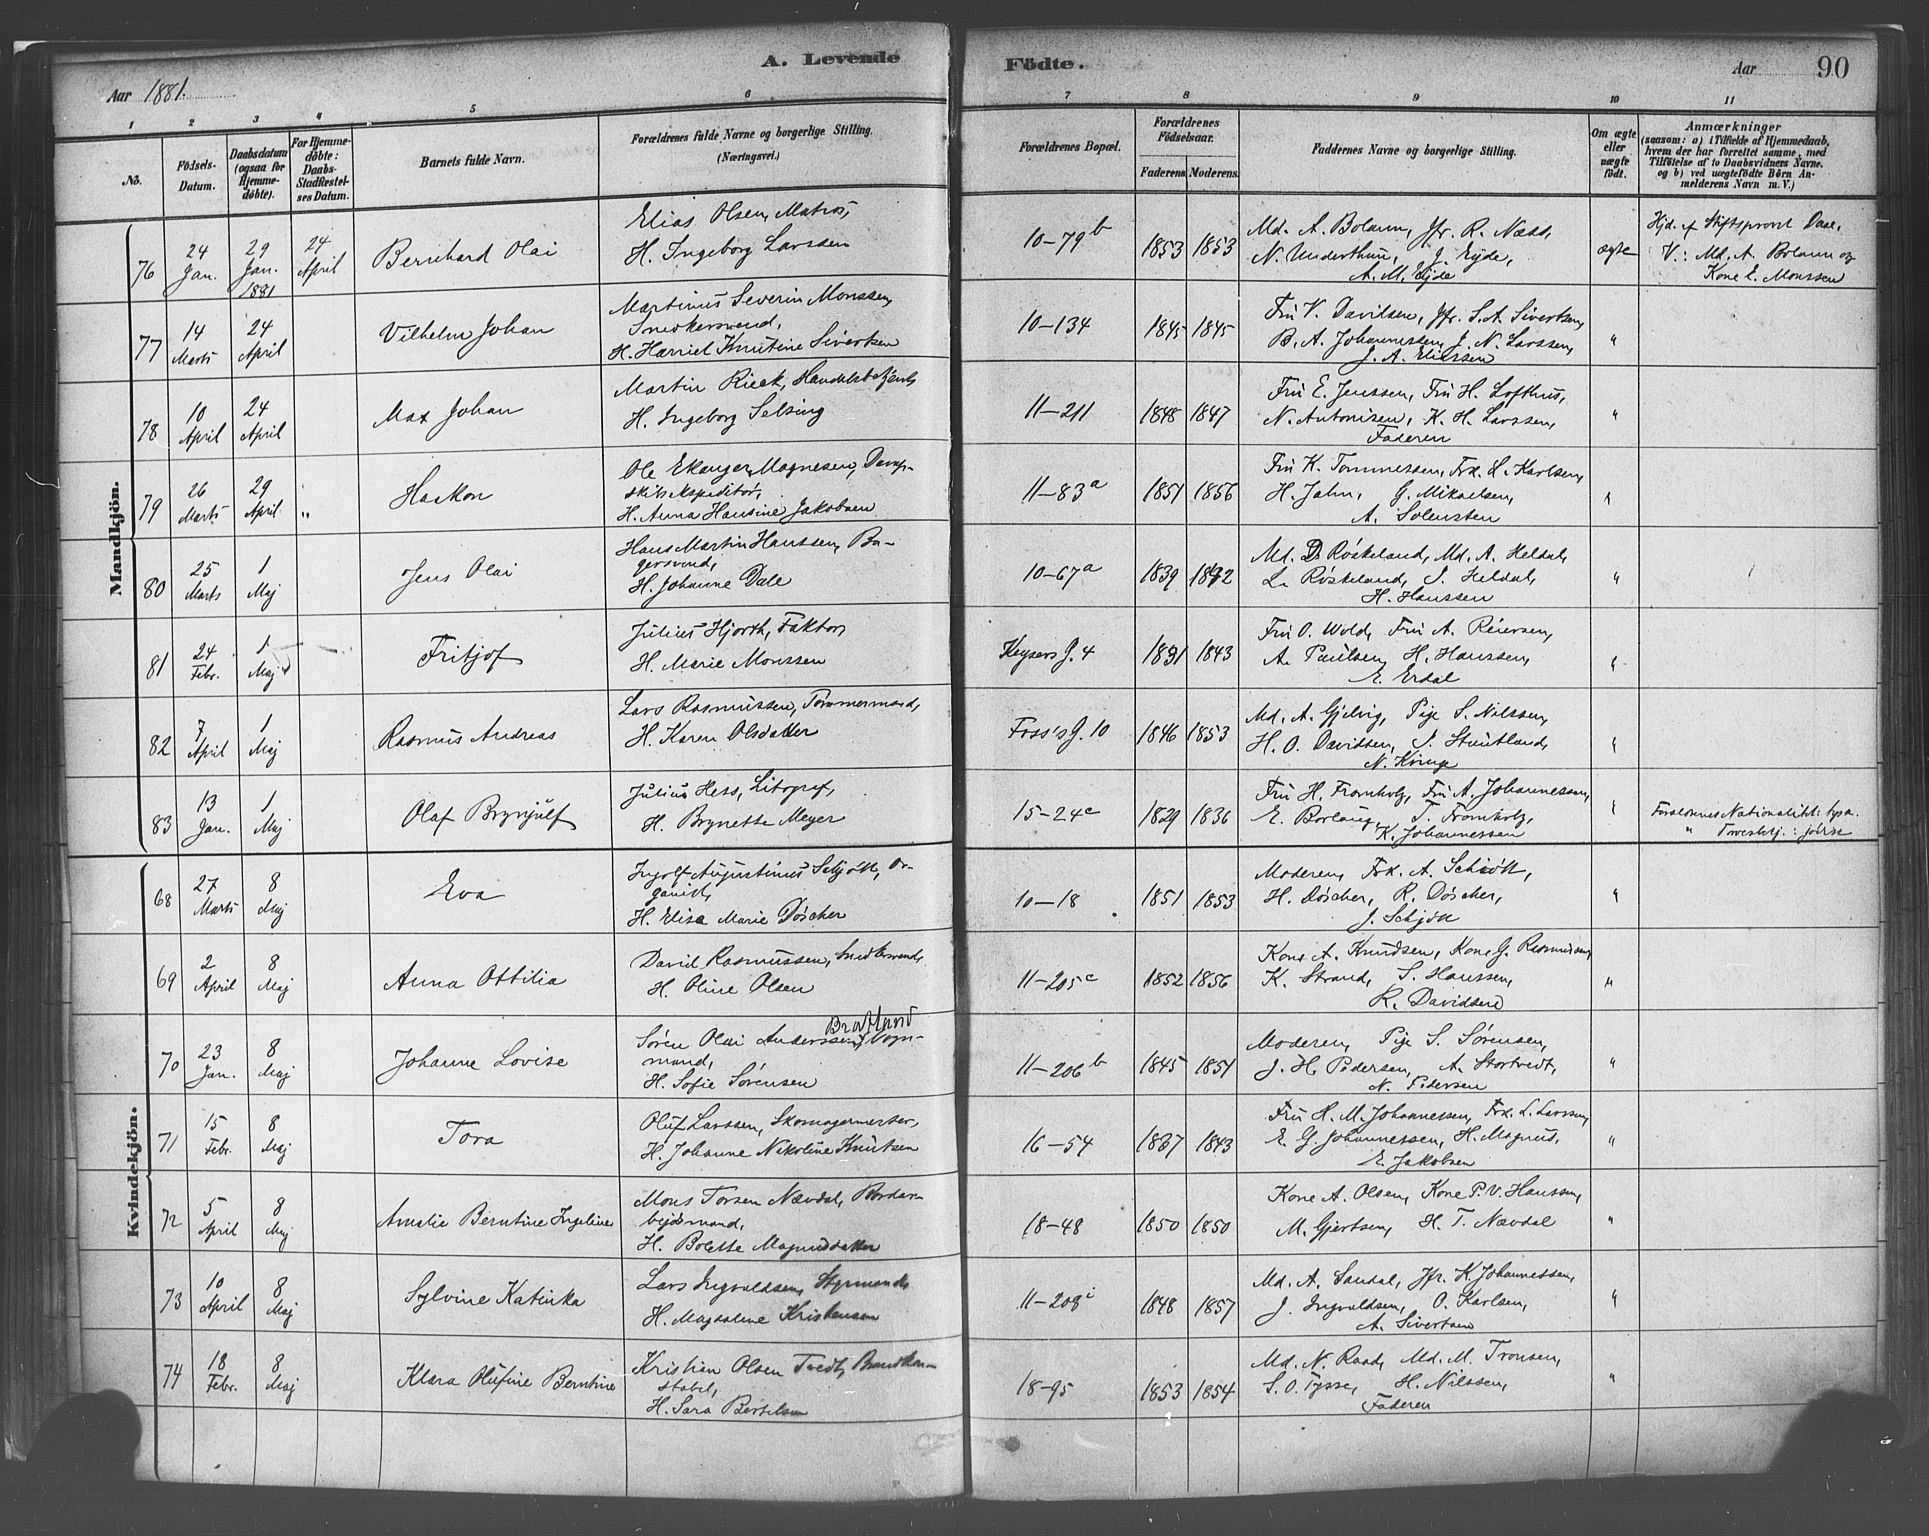 A. Levende Födte.
Aar 1881.
Aar 90
1 2 3 4 5 6 7 8 9 10 11
No.
Födsels-Datum.
Daabsdatum (ogsaa for Hjemmedöbte).
For Hjemmedöbte: Daabs-Stadfæstelses Datum.
Barnets fulde Navn.
Forældrenes fulde Navne og borgerlige Stilling.
(Næringsvei.)
Forældrenes Bopæl.
Forældrenes Födselsaar.
Faderens. Moderens.
Faddernes Navne og borgerlige Stilling.
Om ægte eller uægte födt.
Anmærkninger
(saasom: a) i Tilfælde af Hjemmedaab, hvem der har forrettet samme, med Tilföielse af to Daabsvidners Navne. og b) ved uægtefödte Börn Anmelderens Navn m. V.)
Mandkjön.
76 24 Jan. 29 Jan. 1881 24 April Bernhard Olai
Elias Olsen, Matros,
H. Ingeborg Larssen
10-79 b 1853 1853
Md. A. Bolann, Jfr. R. Næss,
N. Underthun, J. Eyde,
A. M. Eyde
ægte
Hjd. af Stiftsprovst Daae,
V.: Md. A. Bolann og
Kone E. Monssen
77 14 Marts 24 April Vilhelm Johan
Martinus Severin Monssen,
Snedkersvend,
H. Harriet Knutine Sivertsen
10-134 1845 1845
Fru V. Davilsen, Jfr. S. A. Sivertsen,
B. A. Johannessen, J. N. Larssen,
J. A. Eliassen
"
78 10 April 24 April Max Johan
Martin Rieck, Handelsbetjent,
H. Ingeborg Selsing
11-211 1848 1847
Fru E. Jenssen, Fru H. Lofthus,
N. Antonisen, K. H. Larssen,
Faderen
"
79 26 Marts 29 April " Haakon
Ole Ekanger Magnesen, Damp-
skibsekspeditør,
H. Anna Hansine Jakobsen
11-83 a 1851 1856
Fru K. Tommessen, Frk. L. Karlsen,
H. Jahn, G. Mikaelsen,
A. Solensten
"
80 25 Marts 1 Maj Jens Olai
Hans Martin Hanssen, Ba-
gersvend,
H. Johanne Dale
10-67 a 1839 1842
Md. D. Røskeland, Md. A. Heldal,
L. Røskeland, J. Heldal,
H. Hanssen
"
81 24 Febr. 1 Maj Fritjof
Julius Hjorth, Faktor,
H. Marie Monssen
Keysers G. 4 1831 1843
Fru O. Wold, Fru A. Reiersen,
A. Paulsen, H. Hanssen,
E. Erdal
"
82 7 April 1 Maj Rasmus Andreas
Lars Rasmussen, Tømmermand,
H. Karen Olsdatter
Foss's G. 10 1846 1853
Md. A. Gjelvig, Pige S. Nilssen,
H. O. Davidsen, J. Stuntland,
N. Kvinge
"
83 13 Jan. 1 Maj Olaf Brynjulf
Julius Hess, Litograf,
H. Brynette Meyer
15-24 c 1829 1836
Fru H. Fromholz, Fru A. Johannessen,
E. Borlaug, T. Fromholz,
K. Johannessen
"
Forældrenes Nationalitet: tysk.
" Troesbekj.: jødisk
Kvindekjön.
68 27 Marts 8 Maj Eva
Ingolf Augustinus Schjøtt, Or-
ganist,
H. Elise Marie Døscher
10-18 1851 1853
Moderen, Frk. A. Schiøtt,
H. Døscher, R. Døscher,
J. Schjøtt
"
69 2 April 8 Maj Anna Ottilia
David Rasmussen, Snedkersvend,
H. Oline Olsen
11-205 c 1852 1856
Kone A. Knudsen, Kone G. Rasmussen,
K. Strand, S. Hanssen,
R. Davidsen
"
70 23 Jan. 8 Maj Johanne Lovise
Brattland
Søren Olai Anderssen, Vogn-
mand,
H. Sofie Sørensen
11-206 b 1845 1851
Moderen, Pige S. Sørensen,
J. H. Pedersen, A. Stortvedt,
N. Pedersen
"
71 15 Febr. 8 Maj Tora
Oluf Larssen, Skomagermester,
H. Johanne Nikoline Knutsen
16-54 1837 1843
Fru H. M. Johannessen, Frk. L. Larssen,
E. G. Johannessen, H. Magnus,
E. Jakobsen
"
72 5 April 8 Maj Amalie Berntine Ingeline
Mons Torsen Nævdal, Bordar-
bejdsmand,
H. Bolette Magnusdatter
18-48 1850 1850
Kone A. Olsen, Kone P. V. Hanssen,
M. Gjertsen, H. T. Nævdal
"
73 10 April 8 Maj Sylvine Katinka
Lars Ingvaldsen, Styrmand,
H. Magdalene Kristensen
11-209 i 1848 1857
Md. A. Sandal, Jfr. K. Johannessen,
J. Ingvaldsen, O. Karlsen,
A. Sivertsen
"
74 18 Febr. 8 Maj Klara Olufine Berntine
Kristian Olsen Tvedt, Brandkon-
stabel,
H. Sara Bertelsen
18-95 1853 1854
Md. N. Raad, Md. M. Tronsen,
S. O. Tysse, H. Nilssen,
Faderen
"